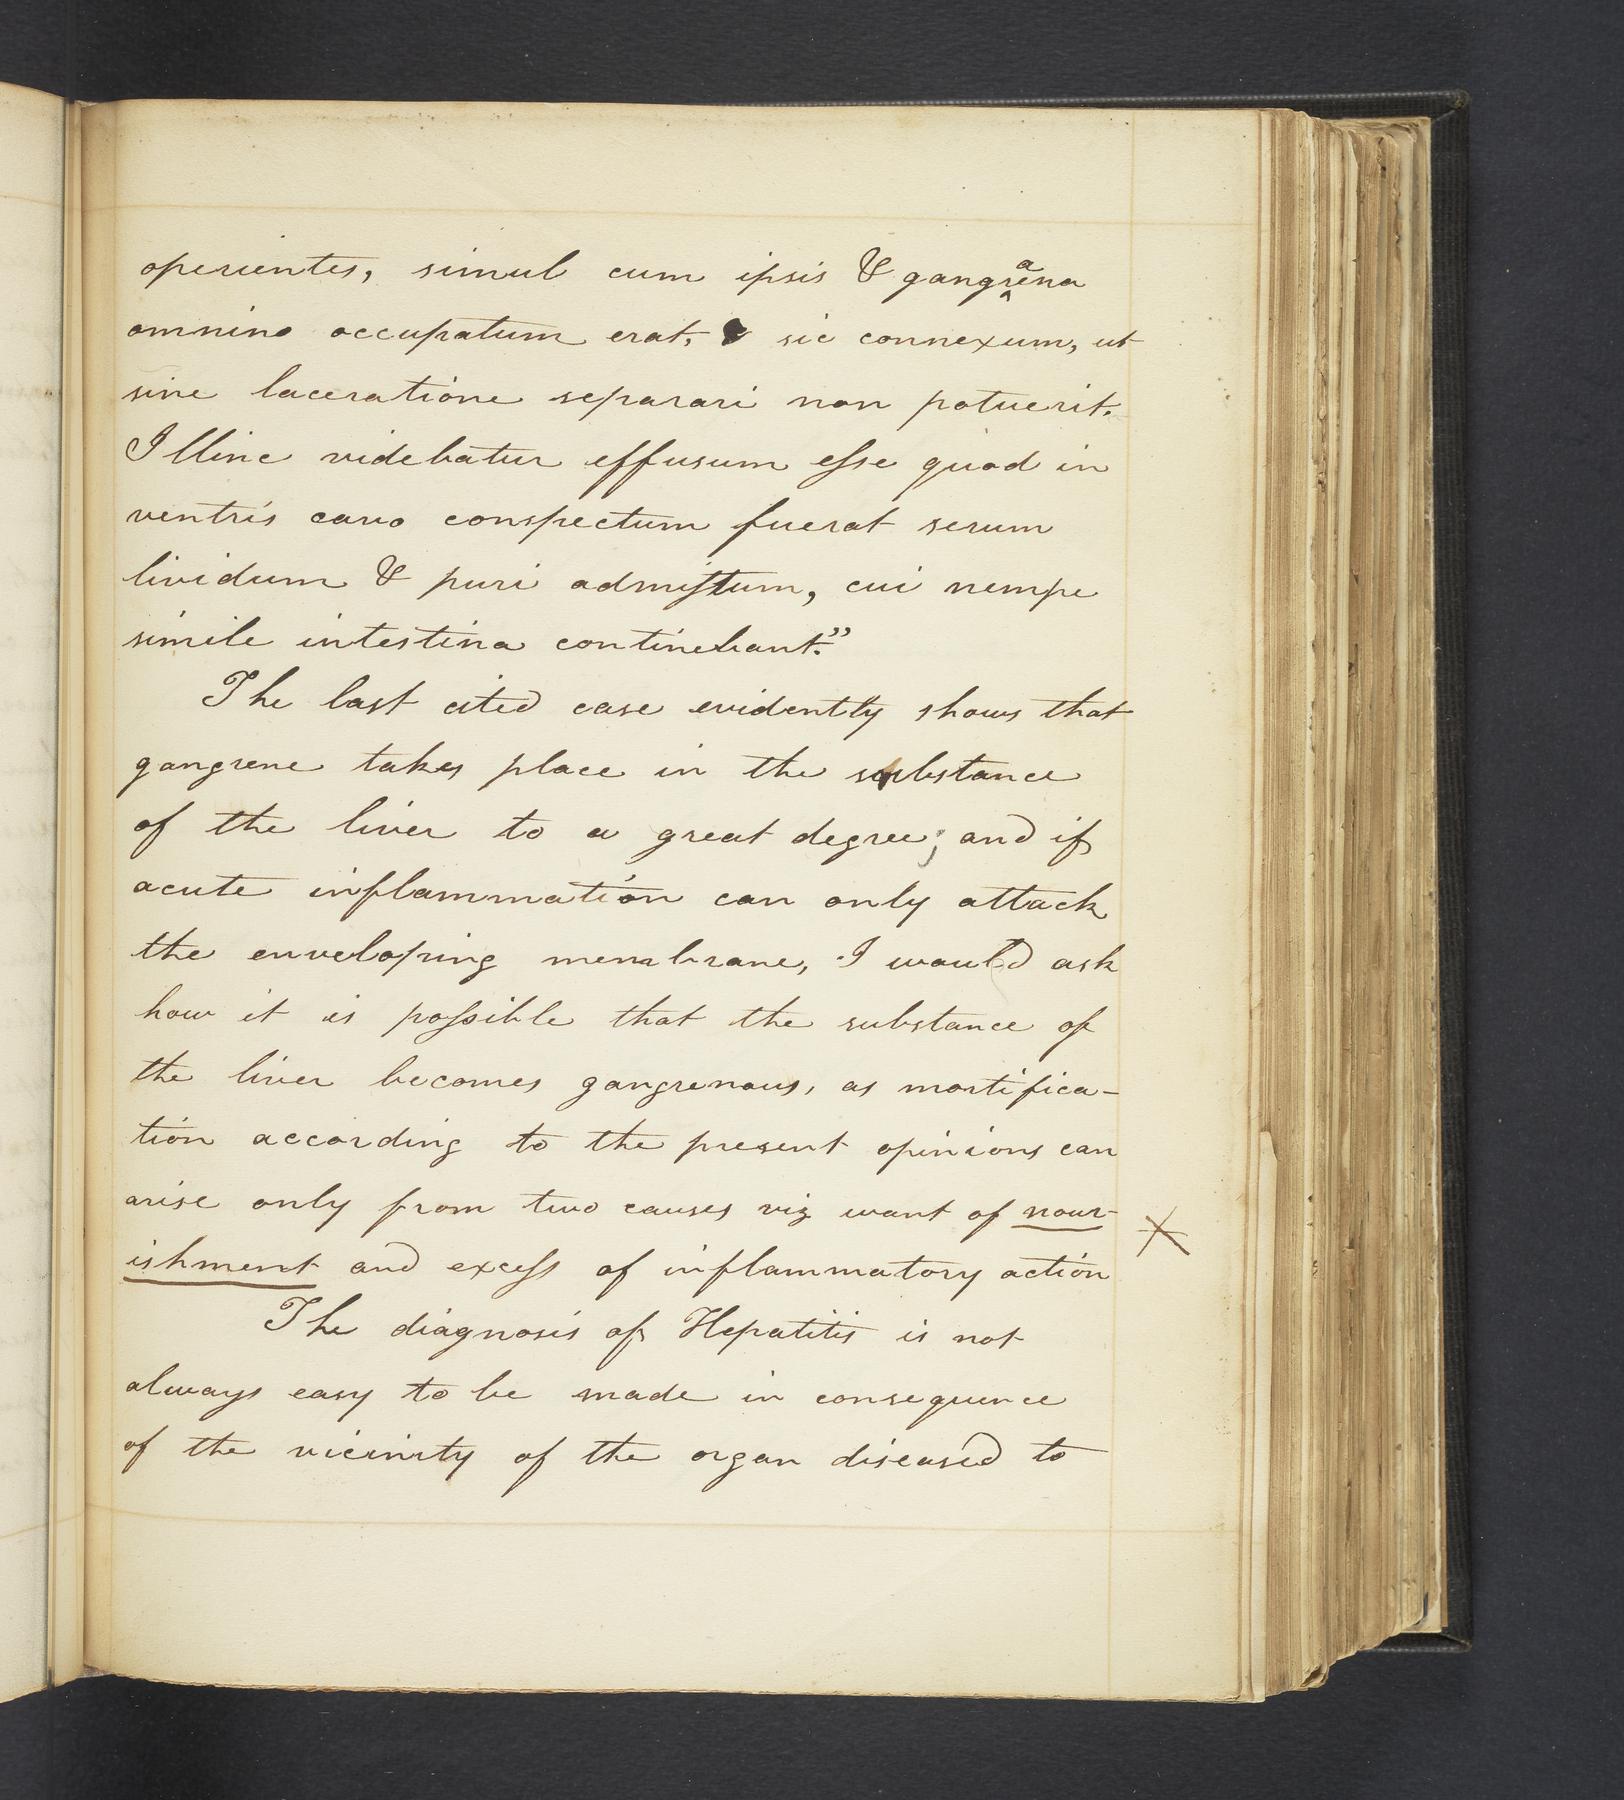 operientes, simul cum ipsis & gangraena
omnino occupatum erat, & sic connexum, ut
sine laceratione separari non potuerit.
Illinc videbatur effusum esse quod in
ventris cavo conspectum fuerat serum
lividum & puri admistum, cui nempe
simile intestina continebant."
The last cited case evidently shows that
gangrene takes place in the substance
of the liver to a great degree; and if
acute inflammation can only attack
the enveloping membrane, I would ask
how it is possible that the substance of
the liver becomes gangrenous, as mortifica-
tion according to the present opinions can
arise only from two causes viz want of nour-
ishment and excess of inflammatory action
The diagnosis of Hepatitis is not
always easy to be made in consequence
of the vicinity of the organ diseased to